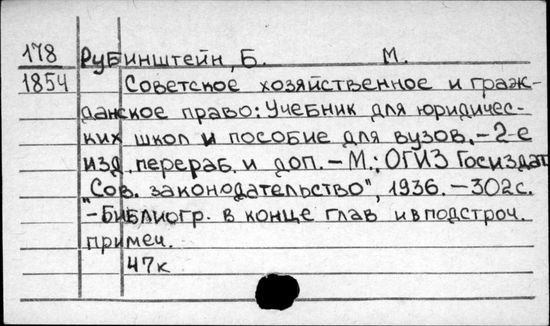 178 Рубинштейн, Б. М.
1854 Советское хозяйственное и граж-
данское право: Учебник для юридичес-
ких школ и пособие для вузов. – 2-е
изд. перераб. и доп. – М.: ОГИЗ Госиздат
"Сов. законодательство", 1936. – 302 с.
– Библиогр. в конце глав и в подстроч.
примеч.
47к